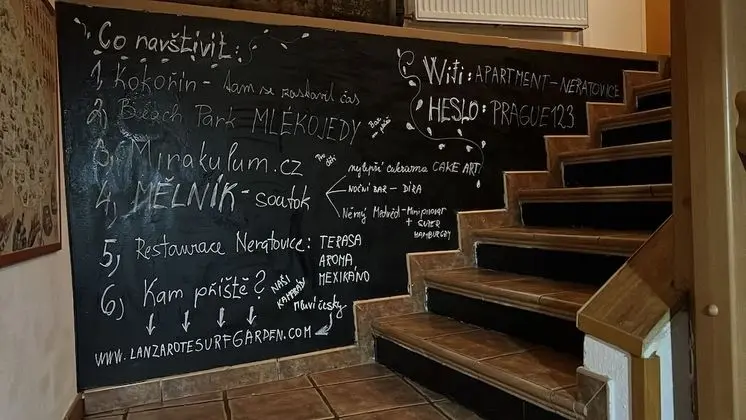 Co navštívit:
1, Kokořín - tam se zastavil čas
2, Beach Park MLÉKOJEDY
3, Mirakulum.cz
Pro děti
4, MĚLNÍK - soutok
nejlepší cukrárna CAKE ART
NOČNÍ BAR - DÍRA
Němý Medvěd - Minipivovar
+ SUPER
HAMBURGRY
5, Restaurace Neratovice: TERASA
AROMA
MEXIKÁNO
6, Kam příště?
NAŠI
KAMARÁDI
Mluví česky
WWW.LANZAROTESURFGARDEN.COM
Wifi: APARTMENT-NERATOVICE
HESLO: PRAGUE123